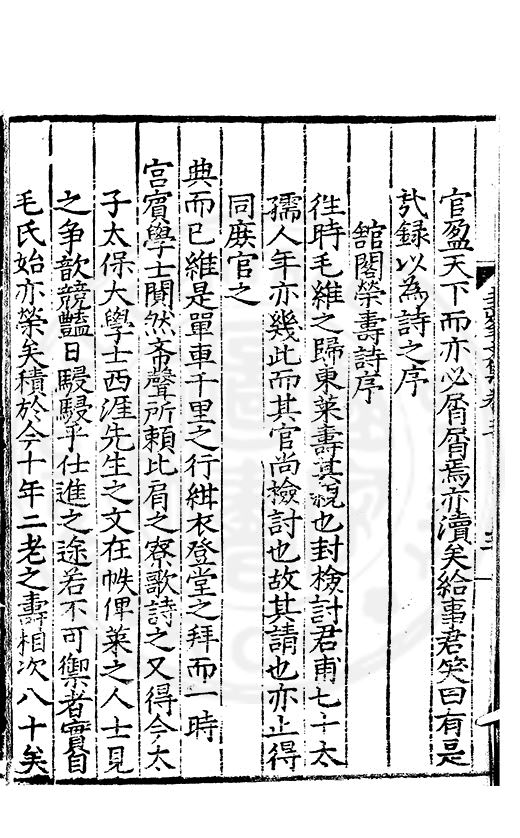 官盈天下而亦必屑屑焉亦瀆矣給事君笑曰有是
哉錄以為詩之序
館閣榮壽詩序
徃時毛維之歸東萊壽其親也封檢討君甫七十太
孺人年亦幾此而其官尚檢討也故其請也亦止得
同廒官之
典而已維是單車千里之行紺衣登堂之拜而一時
宫賓學士閧然齊聲所頼比肩之寮歌詩之又得今太
子太保大學士西涯先生之文在帙俾萊之人士見
之争歆競豔日駸駸乎仕進之途若不可禦者實自
毛氏始亦榮矣積於今十年二老之壽相次八十矣